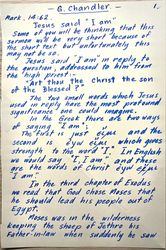 G. Chandler - 1.
Mark. 14:62.
Jesus said "I am."
Some of you will be thinking that this
sermon will be very short because of
the short text but unfortunately this
may not be so.
Jesus said I am in reply to a
question, addressed to him from
the high priest:-
"Art thou the Christ the son
of the Blessed?"
The two small words which Jesus
used in reply have the most profound
significance one could imagine.
In the Greek there are two ways
of saying I am:
The first is just εἰμι and the
second is ἐγω εἰμι which gives
strength to the word "I." In English
we would say "I, I am", and these
are the words of Christ ἐγω εἰμι
I am.
In the third chapter of Exodus
we read that God chose Moses that
he should lead his people out of
Egypt.
Moses was in the wilderness
keeping the sheep of Jethro his
father-in-law when suddenly he saw